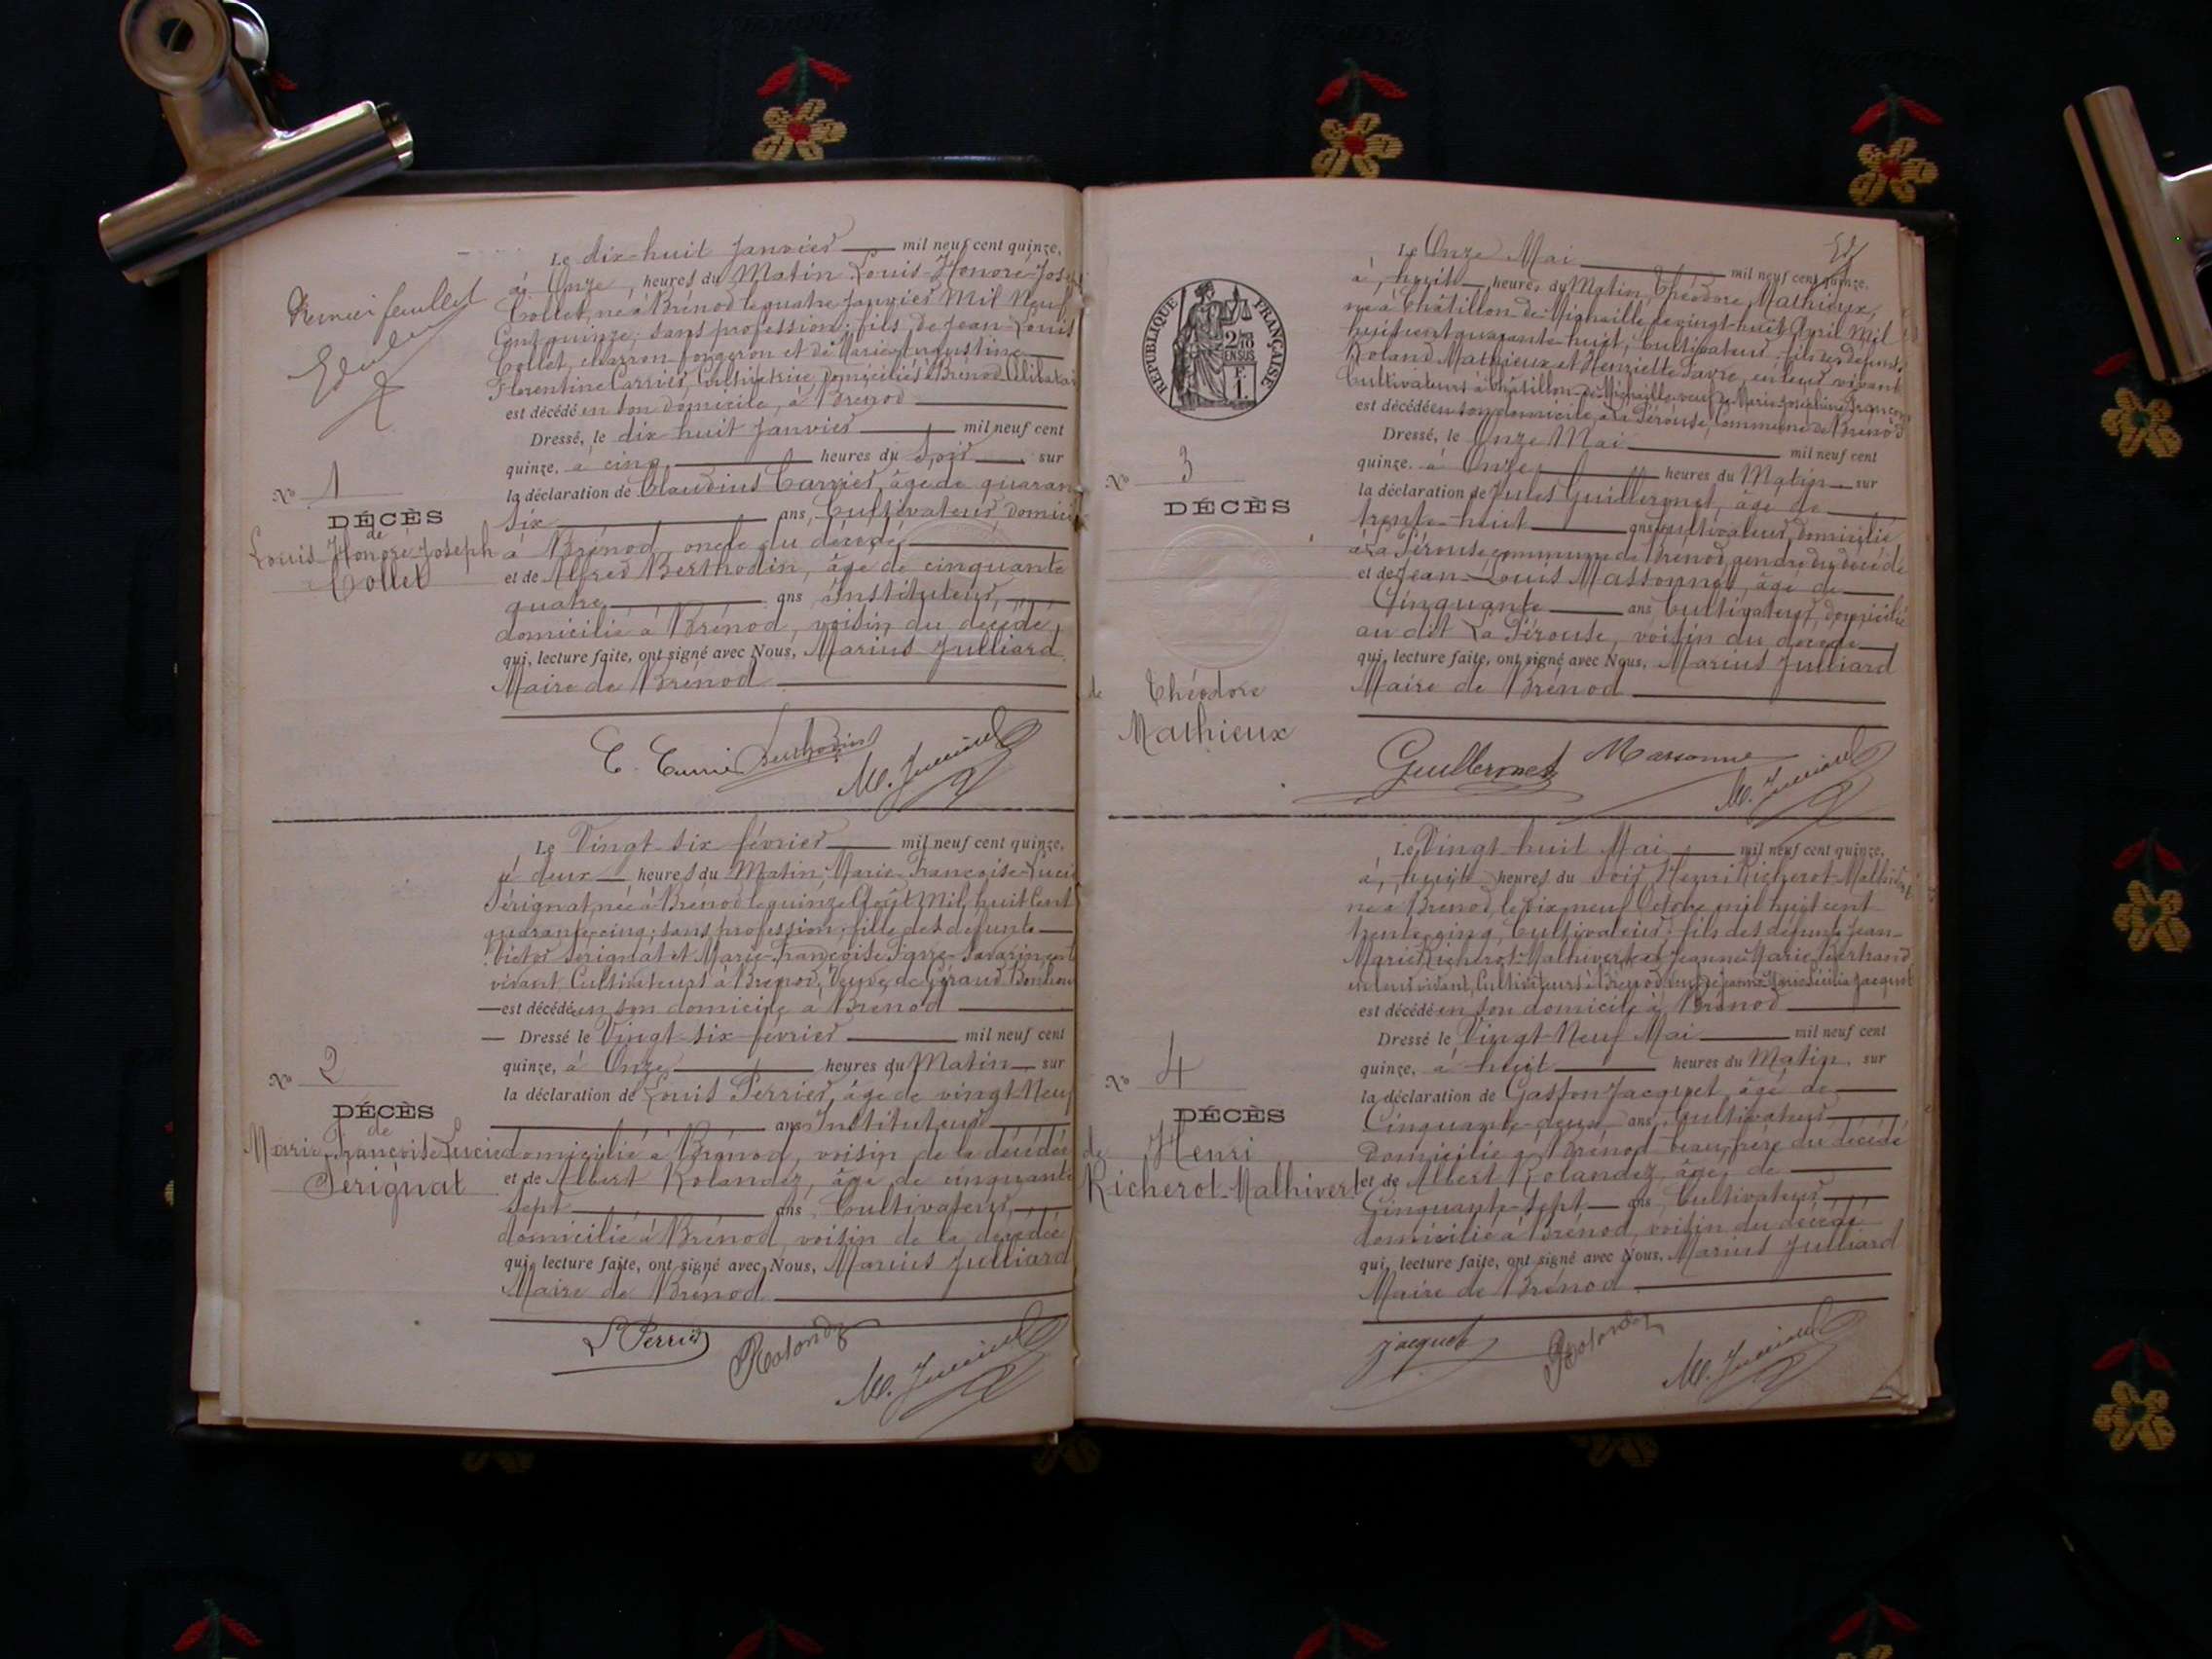 Premier feuillet
Le dix-huit Janvier mil neuf cent quinze,
à Onze heures du Matin Louis-Honoré-Jose
Collet, né à Brénod le quatre Janvier Mil Neuf
Cent quinze; sans profession; fils de Jean-Louis
Collet, charron-forgeron et de Marie-Augustine
Florentine Carrier, Cultivatrice, domiciliés à Brénod. Célibatai
est décédé en son domicile, à Brénod
Dressé, le dix huit Janvier mil neuf cent
quinze, à cinq heures du Soir sur
la déclaration de Claudius Carrier, âgé de quaran
Six ans, Cultivateur domici
à Brénod, oncle du décédé
et de Alfred Berthodin, âgé de cinquante
quatre ans, Instituteur,
domicilié à Brénod, voisin du décédé,
qui, lecture faite, ont signé avec Nous, Marius Julliard
Maire de Brénod
No 1
DÉCÈS
de
Louis-Honoré-Joseph
Collet
Berthodin
M. Julliard
Le Vingt-six février mil neuf cent quinze,
à deux heures du Matin, Marie-Françoise-Lucie
Sérignat, née à Brénod le quinze Août Mil huit Cent
quarante-cinq; sans profession; fille des defunts
Victor Sérignat et Marie-Françoise Favre-Savarin en l
vivant, Cultivateurs à Brénod, Veuve de Géraud
est décédée en son domicile à Brénod
Dressé le Vingt-six février mil neuf cent
quinze, à Onze heures du Matin sur
la déclaration de Louis Perrier, âgé de vingt-Neuf
ans Instituteur
domicilié à Brénod, voisin de la décédée
et de Albert Rolandez, âgé de cinquante
Sept ans Cultivateur,
domicilié à Brénod, voisin de la décédée
qui, lecture faite, ont signé avec Nous, Marius Julliard
Maire de Brénod
No 2
DÉCÈS
de
Marie-Françoise-Lucie
Sérignat
L Perrier
Rolandez
M. Julliard
Le Onze Mai mil neuf cent quinze,
à huit heures du Matin, Théodore Mathieux,
né à Châtillon-de-Michaille le vingt-huit Avril Mil
huit cent quarante-huit, Cultivateur; fils des defunts
Roland Mathieux et Henriette Favre, en leur vivant
Cultivateurs à Châtillon-de-Michaille, veuf de Marie-Joséphine
est décédé en son domicile à La Pérouse, Commune de Brénod
Dressé, le Onze Mai mil neuf cent
quinze, à Onze heures du Matin sur
la déclaration de Jules Guillermet, âgé de
trente-huit ans, cultivateur, domicilié
à La Pérouse, commune de Brénod, gendre du décédé
et de Jean-Louis Massonnet, âgé de
Cinquante ans Cultivateur, domicilié
au dit La Pérouse, voisin du décédé
qui, lecture faite, ont signé avec Nous, Marius Julliard
Maire de Brénod
RÉPUBLIQUE FRANÇAISE
No 3
DÉCÈS
de Théodore
Mathieux
Guillermet
Massonne
M. Julliard
Le Vingt-huit Mai mil neuf cent quinze,
à huit heures du Soir, Henri Richerot-Malhivert
né à Brénod, le dix-neuf Octobre mil huit cent
trente-cinq, Cultivateur; fils des défunts Jean-
Marie Richerot-Malhivert et Jeanne-Marie Bertrand
en leur vivant, Cultivateurs à Brénod, Jacquet
est décédé en son domicile à Brénod
Dressé le Vingt-Neuf Mai mil neuf cent
quinze, à huit heures du Matin, sur
la déclaration de Gaston Jacquet, âgé de
Cinquante-deux ans, Cultivateur
Domicilié à Brénod beau-frère du décédé
et de Albert Rolandez, âgé de
Cinquante-Sept ans, Cultivateur
domicilié à Brénod, voisin du décédé
qui, lecture faite, ont signé avec Nous, Marius Julliard
Maire de Brénod
No 4
DÉCÈS
de Henri
Richerot-Malhivert
Jacquet
Rolandez
M. Julliard